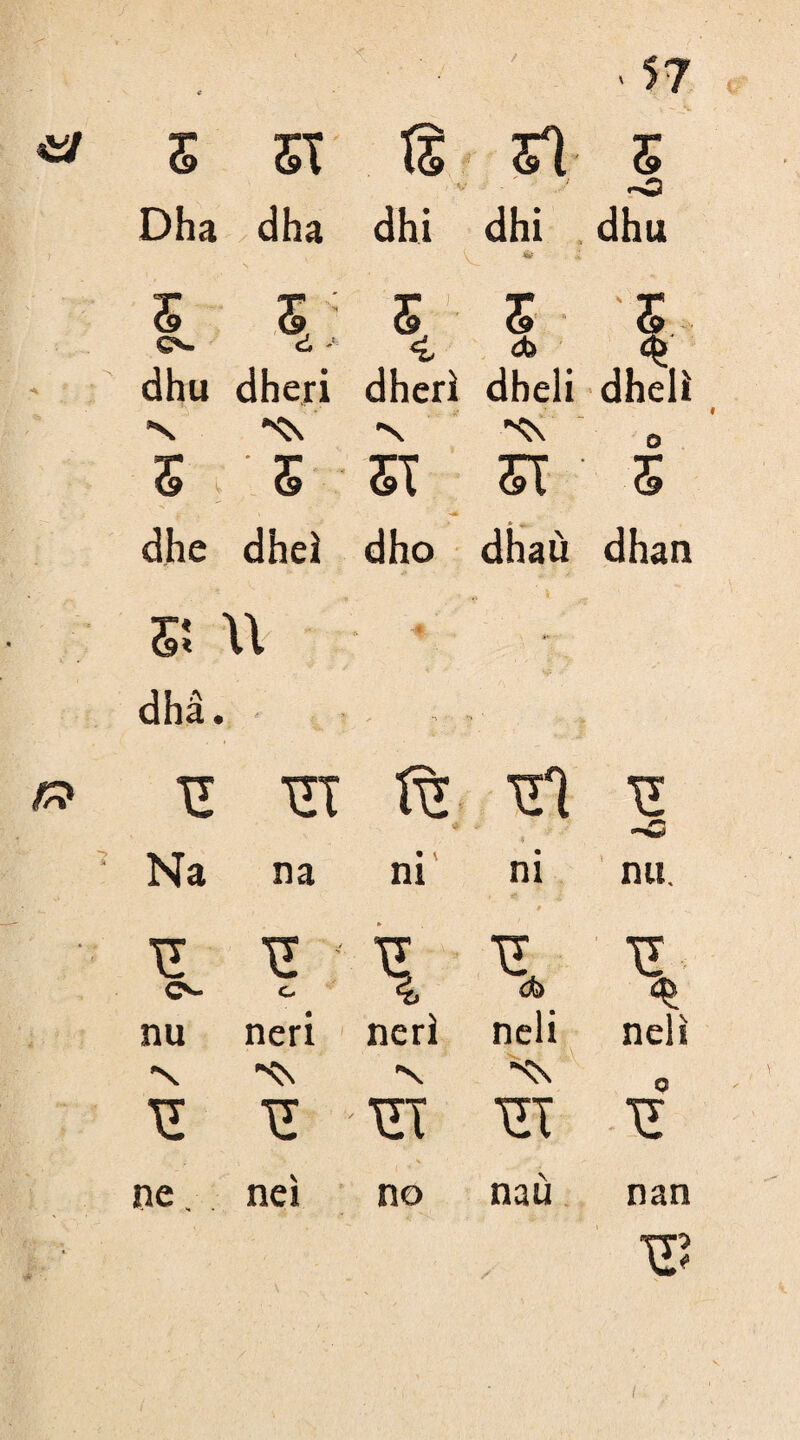 57
ढ ढा ढि ढी ढु
Dha dha dhi dhi dhu
ढू ढृ ढॄ ढॢ ढॣ
dhu dheri dherì dheli dhelì
ढे ढै ढो ढौ ढं
dhe dheì dho dhaù dhan
ढः ॥
dhâ.
ण णा णि णी णु
Na na ni ni nu.
णू णृ णॄ णॢ णॣ
nu neri nerì neli nelì
णे णै णो णौ णं
ne neì no naù nan
णः